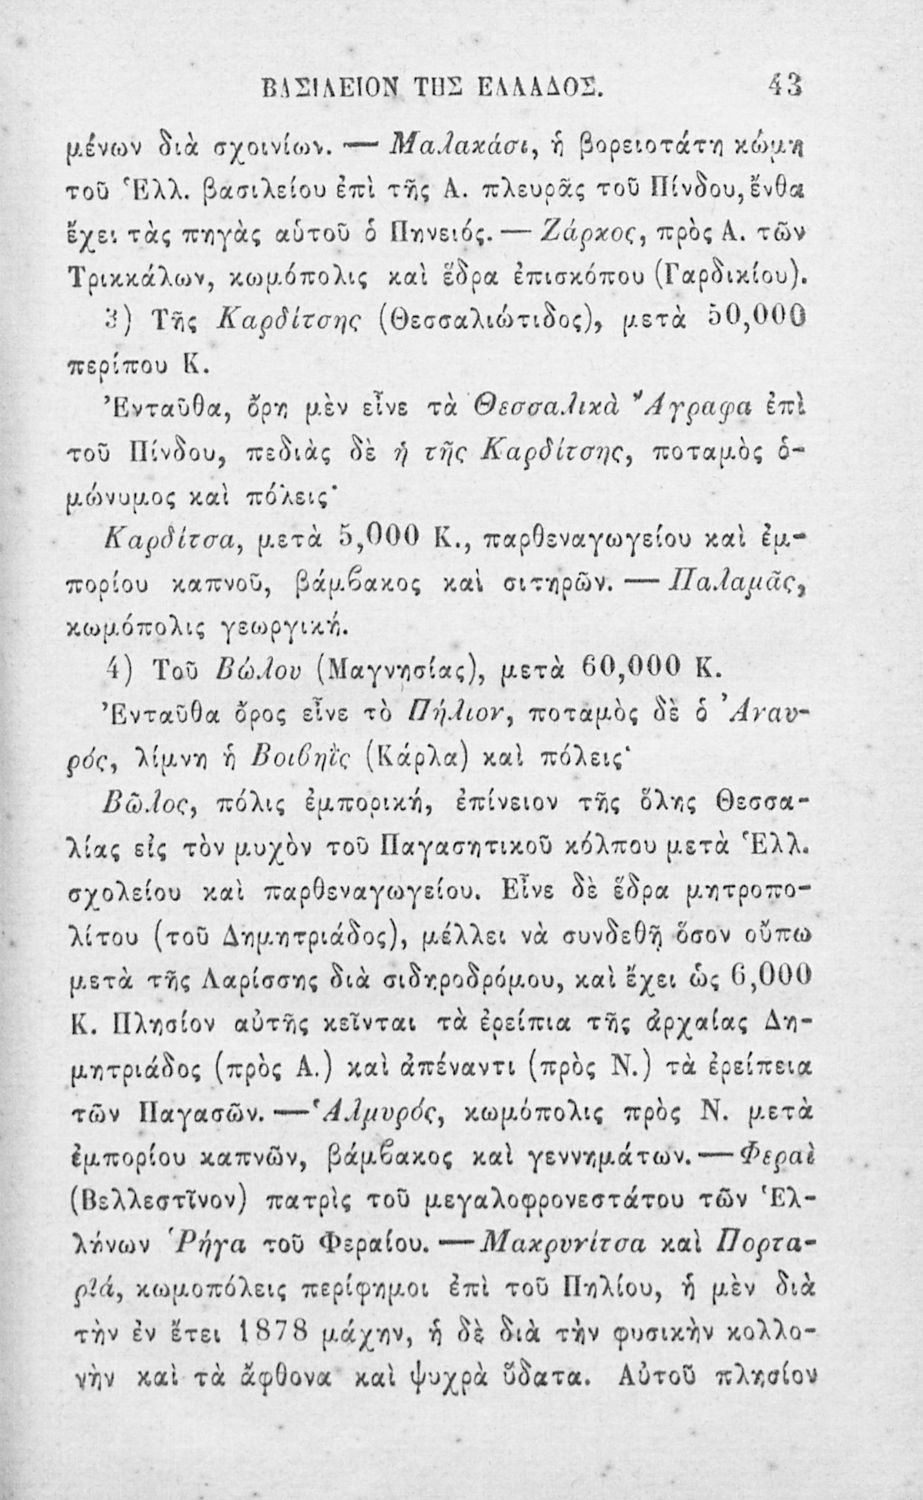 ΒΑΣΙΛΕΙΟΝ ΤΗΣ ΕΛΛΑΔΟΣ. 43
μένων διὰ σχοινίων. — Μαλακάσι, ἡ βορειοτάτη κώμη
τοῦ Ἑλλ. βασιλείου ἐπὶ τῆς Α. πλευρᾶς τοῦ Πίνδου, ἔνθα
ἔχει τὰς πηγὰς αὑτοῦ ὁ Πηνειός. — Ζάρκος, πρὸς Α. τῶν
Τρικκάλων, κωμόπολις καὶ ἕδρα ἐπισκόπου (Γαρδικίου).
3) Τῆς Καρδίτσης (Θεσσαλιώτιδος), μετὰ 50,000
περίπου Κ.
Ἐνταῦθα, ὄρη μὲν εἶνε τὰ Θεσσαλικὰ Ἄγραφα ἐπὶ
τοῦ Πίνδου, πεδιὰς δὲ ἡ τῆς Καρδίτσης, ποταμὸς ὁ-
μώνυμος καὶ πόλεις·
Καρδίτσα, μετὰ 5,000 Κ., παρθεναγωγείου καὶ ἐμ-
πορίου καπνοῦ, βάμβακος καὶ σιτηρῶν. — Παλαμᾶς,
κωμόπολις γεωργική.
4) Τοῦ Βώλου (Μαγνησίας), μετὰ 60,000 Κ.
Ἐνταῦθα ὄρος εἶνε τὸ Πήλιον, ποταμὸς δὲ ὁ Ἀναυ-
ρός, λίμνη ἡ Βοιβηῒς (Κάρλα) καὶ πόλεις·
Βῶλος, πόλις ἐμπορική, ἐπίνειον τῆς ὅλης Θεσσα-
λίας εἰς τὸν μυχὸν τοῦ Παγασητικοῦ κόλπου μετὰ Ἑλλ.
σχολείου καὶ παρθεναγωγείου. Εἶνε δὲ ἕδρα μητροπο-
λίτου (τοῦ Δημητριάδος), μέλλει νὰ συνδεθῇ ὅσον οὔπω
μετὰ τῆς Λαρίσσης διὰ σιδηροδρόμου, καὶ ἔχει ὡς 6,000
Κ. Πλησίον αὐτῆς κεῖνται τὰ ἐρείπια τῆς ἀρχαίας Δη-
μητριάδος (πρὸς Α.) καὶ ἀπέναντι (πρὸς Ν.) τὰ ἐρείπεια
τῶν Παγασῶν. — Ἁλμυρός, κωμόπολις πρὸς Ν. μετὰ
ἐμπορίου καπνῶν, βάμβακος καὶ γεννημάτων. — Φεραὶ
(Βελλεστῖνον) πατρὶς τοῦ μεγαλοφρονεστάτου τῶν Ἑλ-
λήνων Ῥήγα τοῦ Φεραίου. — Μακρυνίτσα καὶ Πορτα-
ριά, κωμοπόλεις περίφημοι ἐπὶ τοῦ Πηλίου, ἡ μὲν διὰ
τὴν ἐν ἔτει 1878 μάχην, ἡ δὲ διὰ τὴν φυσικὴν καλλο-
νὴν καὶ τὰ ἄφθονα καὶ ψυχρὰ ὕδατα. Αὐτοῦ πλησίον